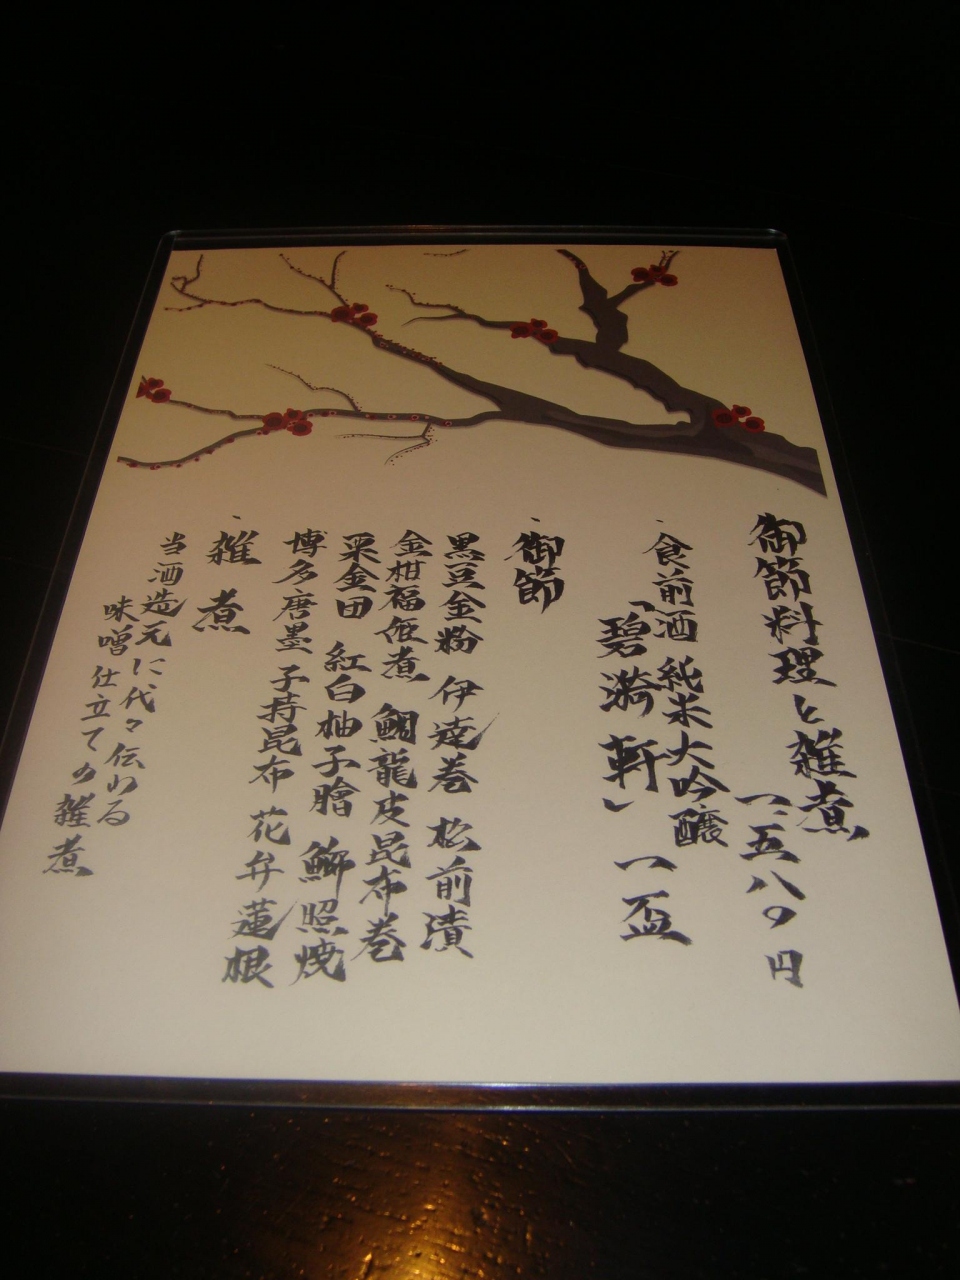 御節料理と雑煮
一、五八〇円
・食前酒 純米大吟醸
「碧漪軒」 一盃
・御節
黒豆金粉 伊達巻 松前漬
金柑福俵煮 鯛龍皮昆布巻
栗金団 紅白柚子膾 鰤照焼
博多唐墨 子持昆布 花弁蓮根
・雑煮
当酒造元に代々伝わる
味噌仕立ての雑煮